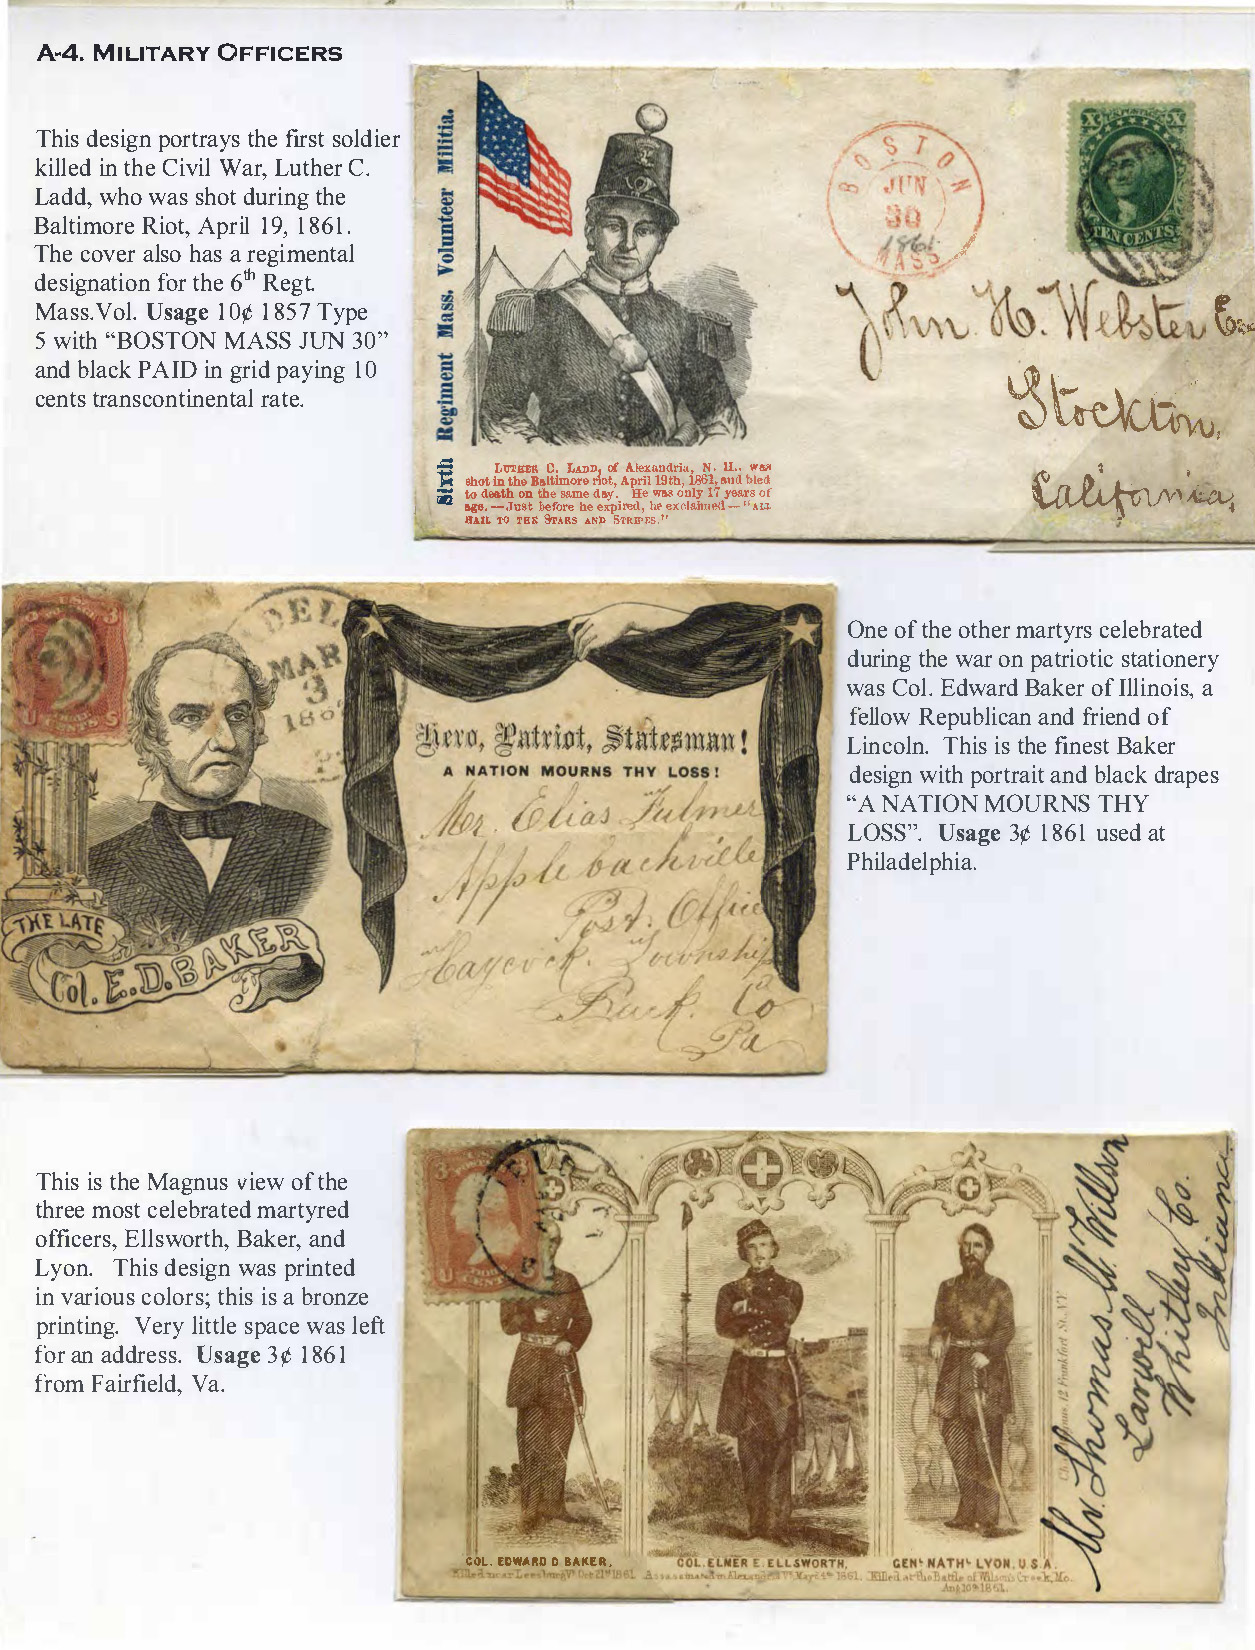 A-4. MILITARY OFFICERS
This design portrays the first soldier
killed in the Civil War, Luther C.
Ladd, who was shot during the
Baltimore Riot, April 19, 1861.
The cover also has a regimental
designation for the 6th Regt.
Mass.Vol. Usage 10¢ 1857 Type
5 with “BOSTON MASS JUN 30”
and black PAID in grid paying 10
cents transcontinental rate.
Sixth Regiment Mass. Volunteer Militia.
LUTHER C. LADD, of Alexandria, N. H., was
shot in the Baltimore riot, April 19th, 1861, and bled
to death on the same day. He was only 17 years of
age.—Just before he expired, he exclaimed—“ALL
HAIL TO THE STARS AND STRIPES.”
BOSTON
JUN
30
1861
MASS
X X
TEN CENTS
John H. Webster
Stockton,
California,
3 3
MAR
3
Hero, Patriot, Statesman!
A NATION MOURNS THY LOSS!
Mr. Elias Fulmer
Applebachville
Post. Office
Haycock. Township
Buck. Co
Pa
THE LATE
Col. E.D. BAKER
One of the other martyrs celebrated
during the war on patriotic stationery
was Col. Edward Baker of Illinois, a
fellow Republican and friend of
Lincoln. This is the finest Baker
design with portrait and black drapes
“A NATION MOURNS THY
LOSS”. Usage 3¢ 1861 used at
Philadelphia.
This is the Magnus view of the
three most celebrated martyred
officers, Ellsworth, Baker, and
Lyon. This design was printed
in various colors; this is a bronze
printing. Very little space was left
for an address. Usage 3¢ 1861
from Fairfield, Va.
Mr. Thomas W. Willson
Larwill
Whitley Co.
Indiana
12 Frankfort St. N.Y.
COL. EDWARD D. BAKER,
Killed near Leesburg Va. Oct 21st 1861.
COL. ELMER E. ELLSWORTH,
GENL NATHL LYON, U.S.A.
Killed at the Battle of Wilson's Creek, Mo.
Aug 10th 1861.